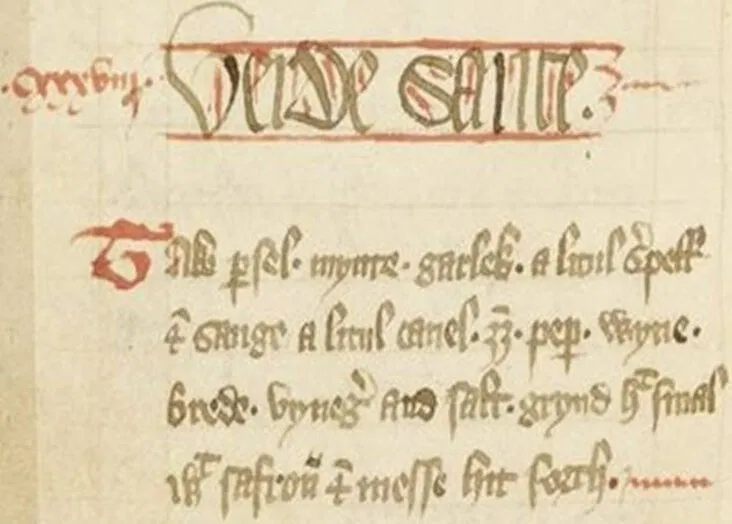 .Cxxxviij. Verde Sause.
Tak ꝑsel. mynte. garlek. a litul s̾pell
⁊ sauge a litul canel. peꝑ. wyne.
brede. vyneg̾ and salt. grynd hᵗ smal
wᵗ safroū ⁊ messe hit forth.